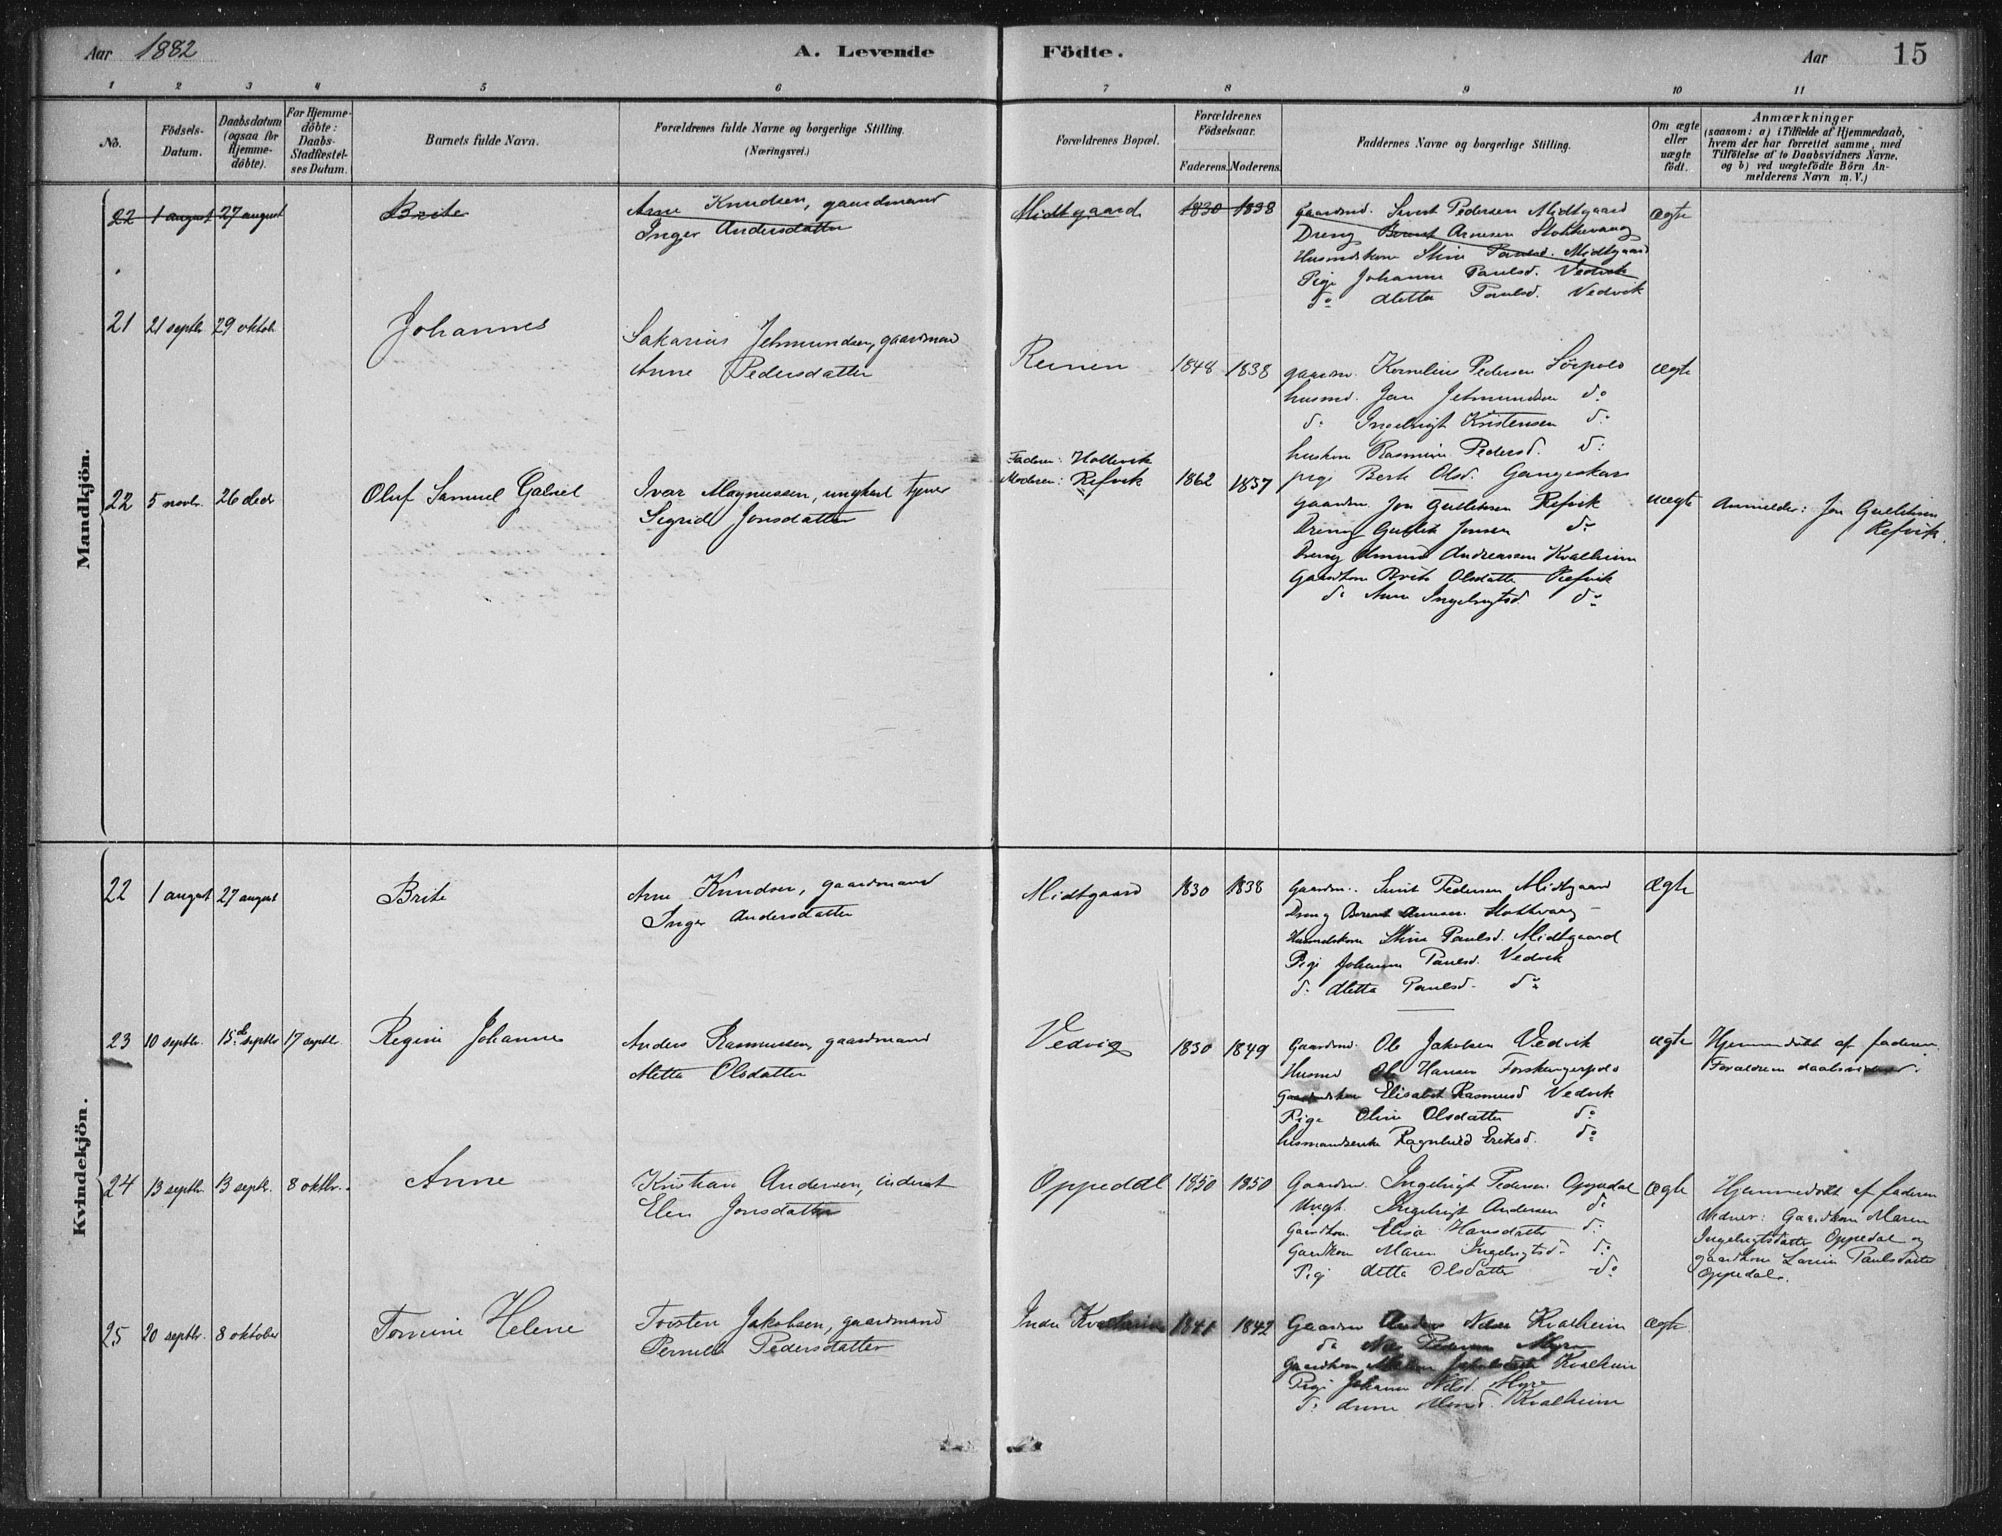 Aar 1882 A. Levende Födte. Aar 15
1 2 3 4 5 6 7 8 9 10 11
No.
Födsels-Datum.
Daabsdatum (ogsaa for Hjemme-döbte).
For Hjemme-döbte: Daabs-Stadfæstel-ses Datum.
Barnets fulde Navn.
Forældrenes fulde Navne og borgerlige Stilling.
(Næringsvei.)
Forældrenes Bopæl.
Forældrenes Födselsaar.
Faderens. Moderens.
Faddernes Navne og borgerlige Stilling.
Om ægte eller uægte födt.
Anmærkninger
(saasom: a) i Tilfælde af Hjemmedaab,
hvem der har forrettet samme, med
Tilföielse af to Daabsvidners Navne,
og b) ved uægtefödte Börn An-
melderens Navn m. V.)
Mandkjön.
22 1 august 27 august Brite
Arne Knudsen, gaardmand
Inger Andersdatter
Midtgaard 1830 1838
Gaardmd. Sivert Pedersen Midtgaard
Dreng Berent Arnesen Stokkevaag
Husmdskone Stine Paulsd. Midtgaard
Pige Johanne Paulsd. Vedvik
do Aletta Paulsd. Vedvik
ægte
21 21 septbr 29 oktob. Johannes
Sakarius Jetmundsen, gaardmand
Anne Pedersdatter
1848 1838
gaardm. Kornelius Pedersen Sörpolo
husmd. Jon Jetmundsen do
do Ingebrigt Kristensen do
huskone Rasmine Pedersd. do
pige Berte Olsd.
ægte
22 5 novbr. 26 decbr Oluf Samuel Gabriel
Ivar Magnussen, ungkarl tjener
Sigrid Jonsdatter
Faderen:
Moderen: Refvik
1862 1857
Gaardm. Jon Gulliksen Refvik
Dreng Gullik Jonsen do
Dreng Amund Andreassen Kvalheim
Gaardkone Brite Olsdatter Refvik
do Anne Ingebrigtsd. do
uægte
Anmelder: Jon Gulliksen
Refvik.
Kvindekjön.
22 1 august 27 august Brite
Arne Knudsen, gaardmand
Inger Andersdatter
Midtgaard 1830 1838
Gaardm. Sivert Pedersen Midtgaard
Dreng Berent Arnesen Stokkevaag
Husmdskone Stine Paulsd. Midtgaard
Pige Johanne Paulsd. Vedvik
do Aletta Paulsd. do
Ægte
23 10 septbr. 15de septbr 17 septbr. Regine Johanne
Anders Rasmussen, gaardmand
Aletta Olsdatter
Vedvig 1830 1849
Gaardmd. Ole Jakobsen Vedvik
Husmd Ole Hansen
Gaardmdskone Elisabet Rasmusd Vedvik
Pige Oline Olsdatter do
husmandsenke Ragnhild Eriksd. do
ægte
Hjemmedöbt af faderen.
Forældrene daabsvidner.
24 13 septbr. 13 septbr. 8 oktbr. Anne
Kristian Andersen, inderst
Elen Jonsdatter
Oppedal 1850 1850
Gaardm. Ingebrigt Pedersen Oppedal
Ungk. Ingebrigt Andersen do
Gaardkone Elisa Hansdatter do
Gaardkone Maren Ingebrigtsd. do
Pige Aletta Olsdatter do
Ægte
Hjemmedöbt af faderen
Vidner: Gaardkone Maren
Ingebrigtsdatter Oppedal og
gaardkone Lovise Paulsdatter
Oppedal.
25 20 septbr. 8 oktober Tomine Helene
Torsten Jakobsen, gaardmand
Pernille Pedersdatter
Indre Kvalheim 1841 1842
Gaardm Anders Nilsen Kvalheim
do Nils Pedersen Myre
Gaardkone Jakobsdatter Kvalheim
Pige Johanne Nilsd. Myre
do Anne Kvalheim
Ægte